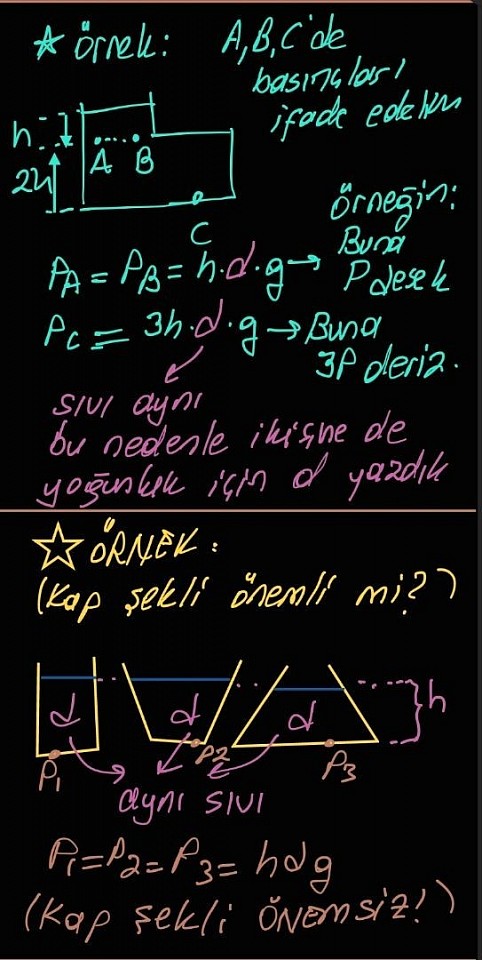 ☆ örnek: A, B, C'de
basınçları
ifade edelim
h
2h
A B
C
P_A = P_B = h.d.g → Örneğin:
Buna
P desek
P_C = 3h.d.g → Buna
3P deriz.
sıvı aynı
bu nedenle ikisine de
yoğunluk için d yazdık
☆ ÖRNEK:
(Kap şekli önemli mi?)
d d d h
P1 P2 P3
aynı sıvı
P1=P2=P3= hdg
(Kap şekli ÖNEMSİZ!)